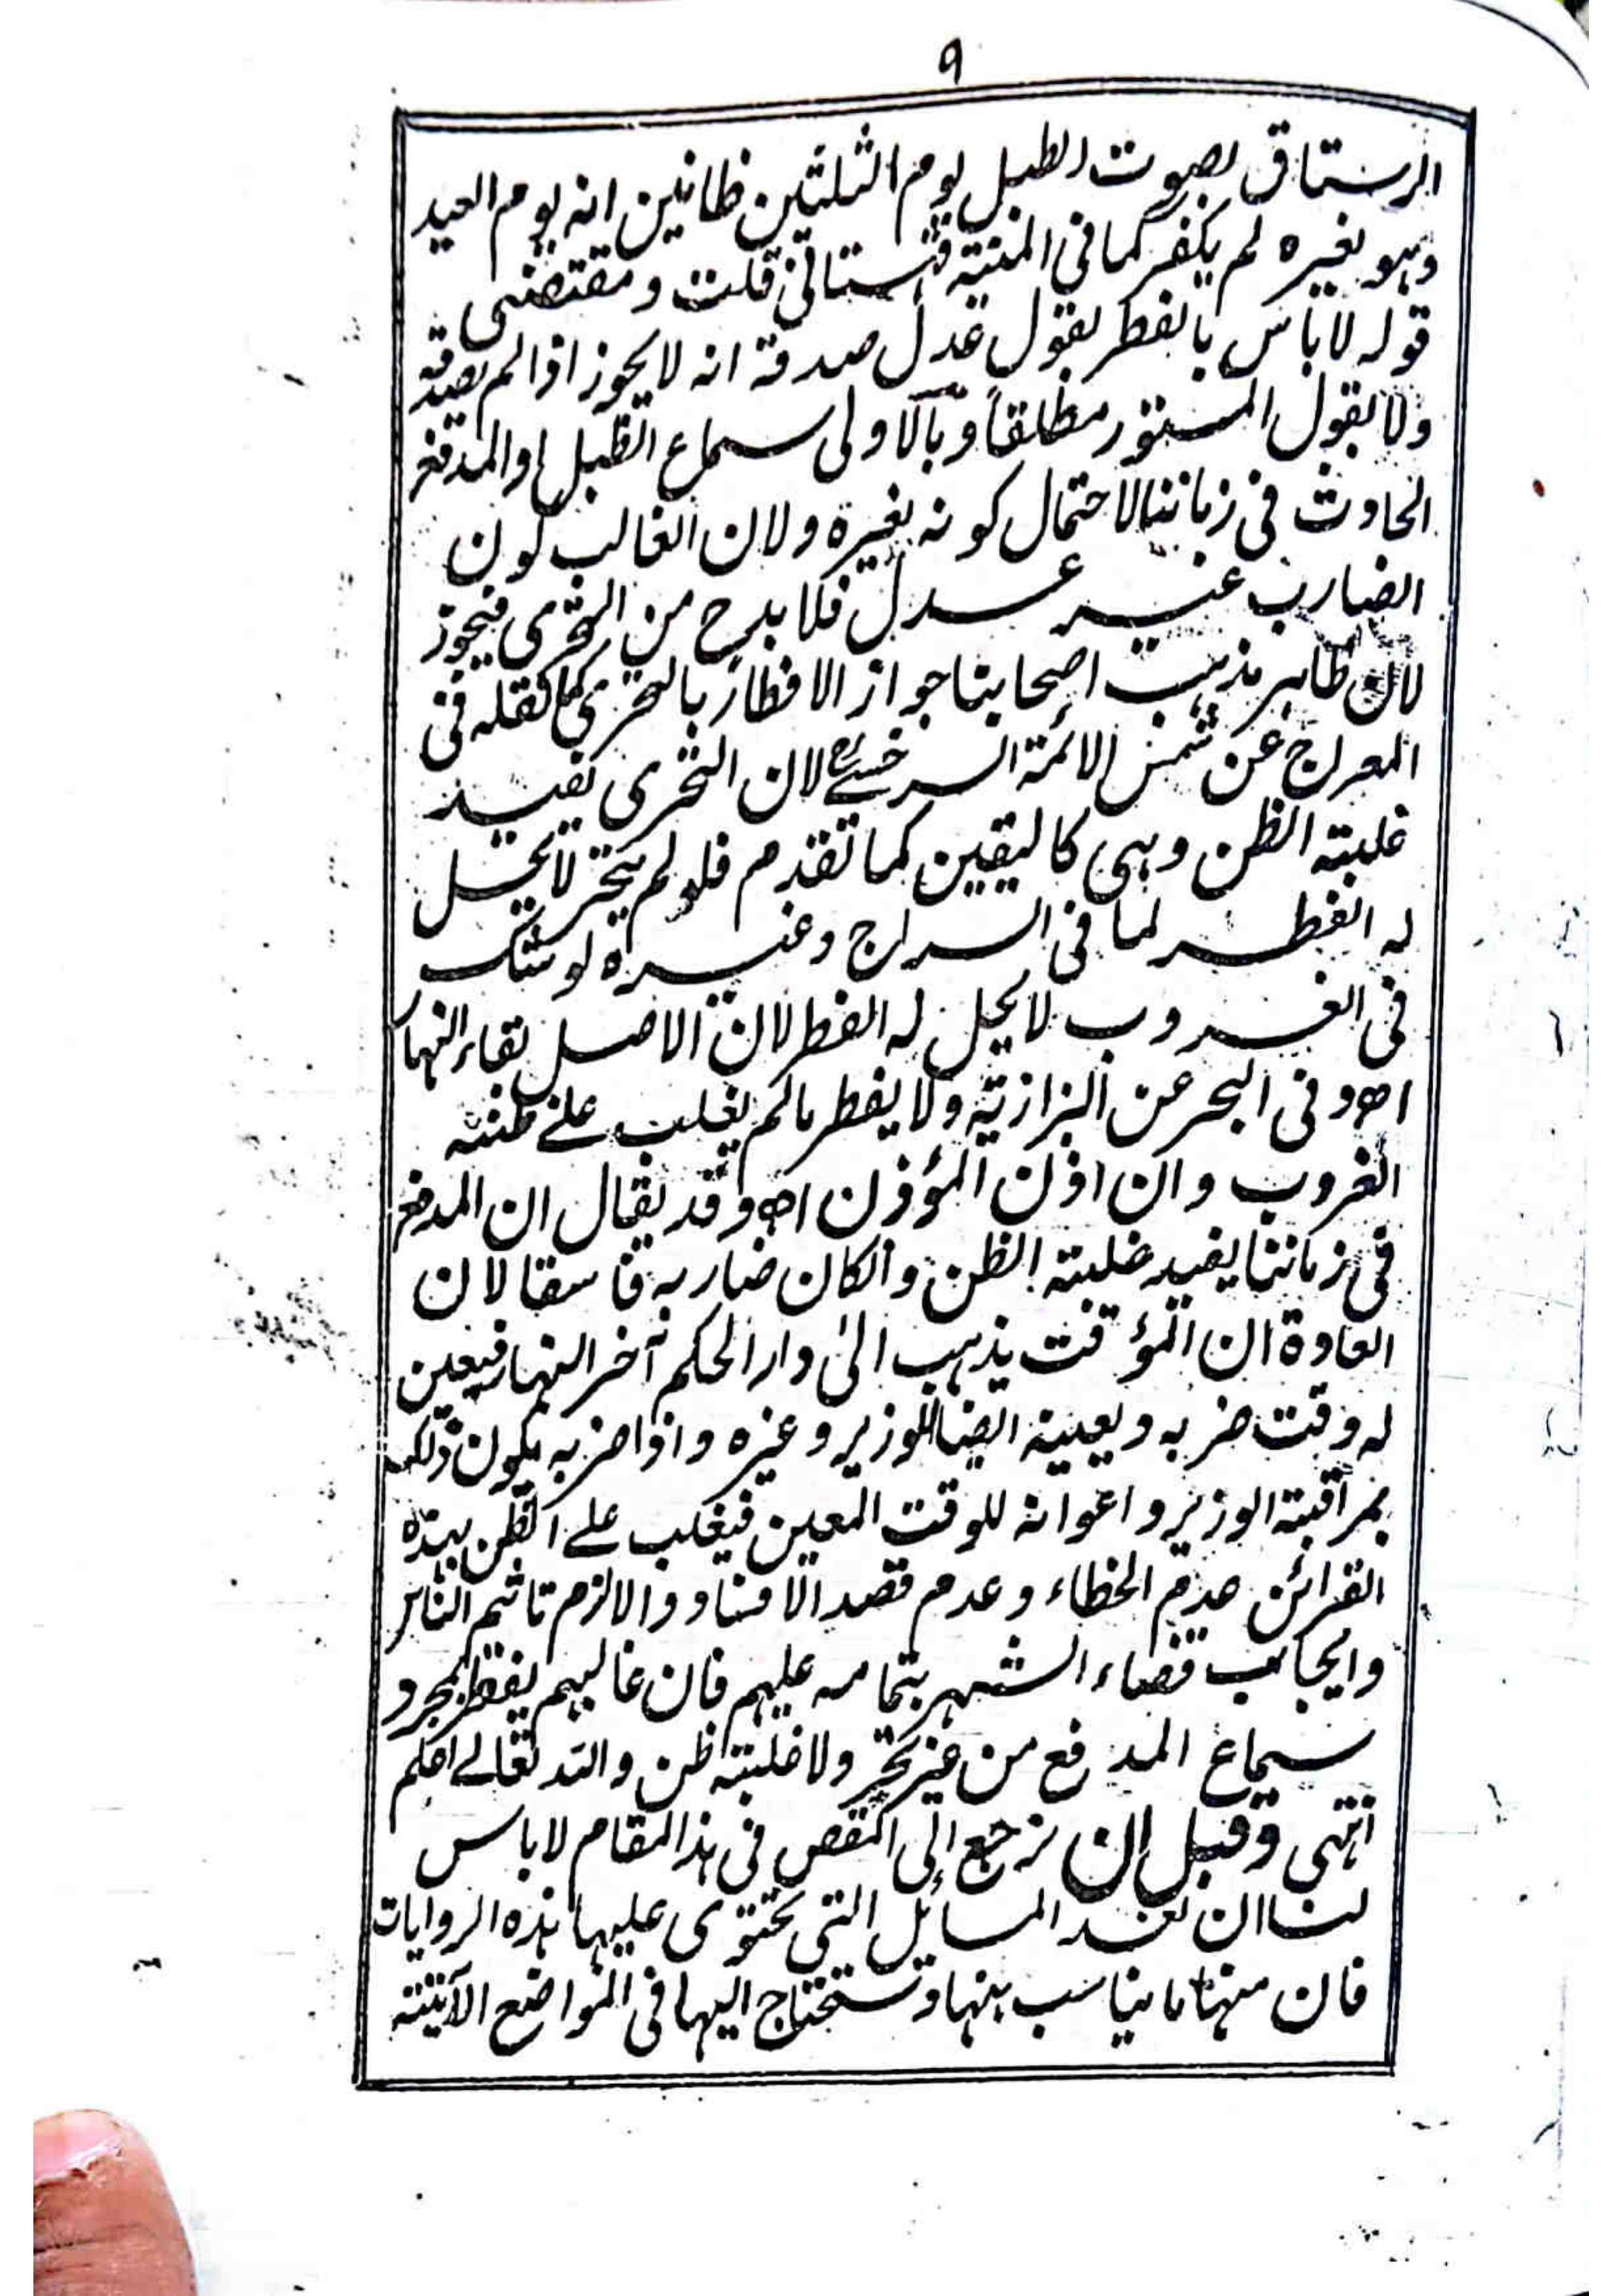 ٩
الرستاق بصوت الطبل يوم الثلثين ظانين انه يوم العيد
وهو لغيره لم يكفر كما فى المنية قهستانى قلت ومقتضى
قوله لا باس بالفطر بقول عدل صدقه انه لا يجوز اذا لم يصدقه
ولا بقول المستور مطلقاً وبالاولى سماع الطبل او المدفع
الحادث فى زماننا لاحتمال كونه لغيره ولان الغالب كون
الضارب غير عدل فلا بد ح من التحرى فيجوز
لان ظاهر مذهب اصحابنا جواز الافطار بالتحرى كما نقله فى
المعراج عن شمس الائمة السرخسے لان التحرى يفيد
غلبة الظن وهى كاليقين كما تقدم فلو لم يتحر لا يحل
له الفطر لما فى السراج وغيره لو شك
فى الغروب لا يحل له الفطر لان الاصل بقاء النهار
اه وفى البحر عن البزازية ولا يفطر ما لم يغلب علے ظنه
الغروب وان اذن المؤذن اه وقد يقال ان المدفع
فى زماننا يفيد غلبة الظن وانكان ضاربه فاسقا لان
العادة ان المؤقت يذهب الى دار الحكم آخر النهار فيعين
له وقت ضربه ويعينه ايضا للوزير وغيره واذا ضربه يكون ذلك
بمراقبة الوزير واعوانه للوقت المعين فيغلب علے الظن بهذه
القرائن عدم الخطاء وعدم قصد الافساد والا لزم تاثيم الناس
وايجاب قضاء الشهر بتمامه عليهم فان غالبهم يفطر بمجرد
سماع المدفع من غير تحر ولا غلبة ظن والله تعالے اعلم
انتهى وقبل ان نرجع الى النقص فى هذا المقام لا باس
لنا ان نعد المسائل التى تحتوى عليها هذه الروايات
فان منها ما يناسب بنها وتستحتاج اليها فى المواضع الآتية